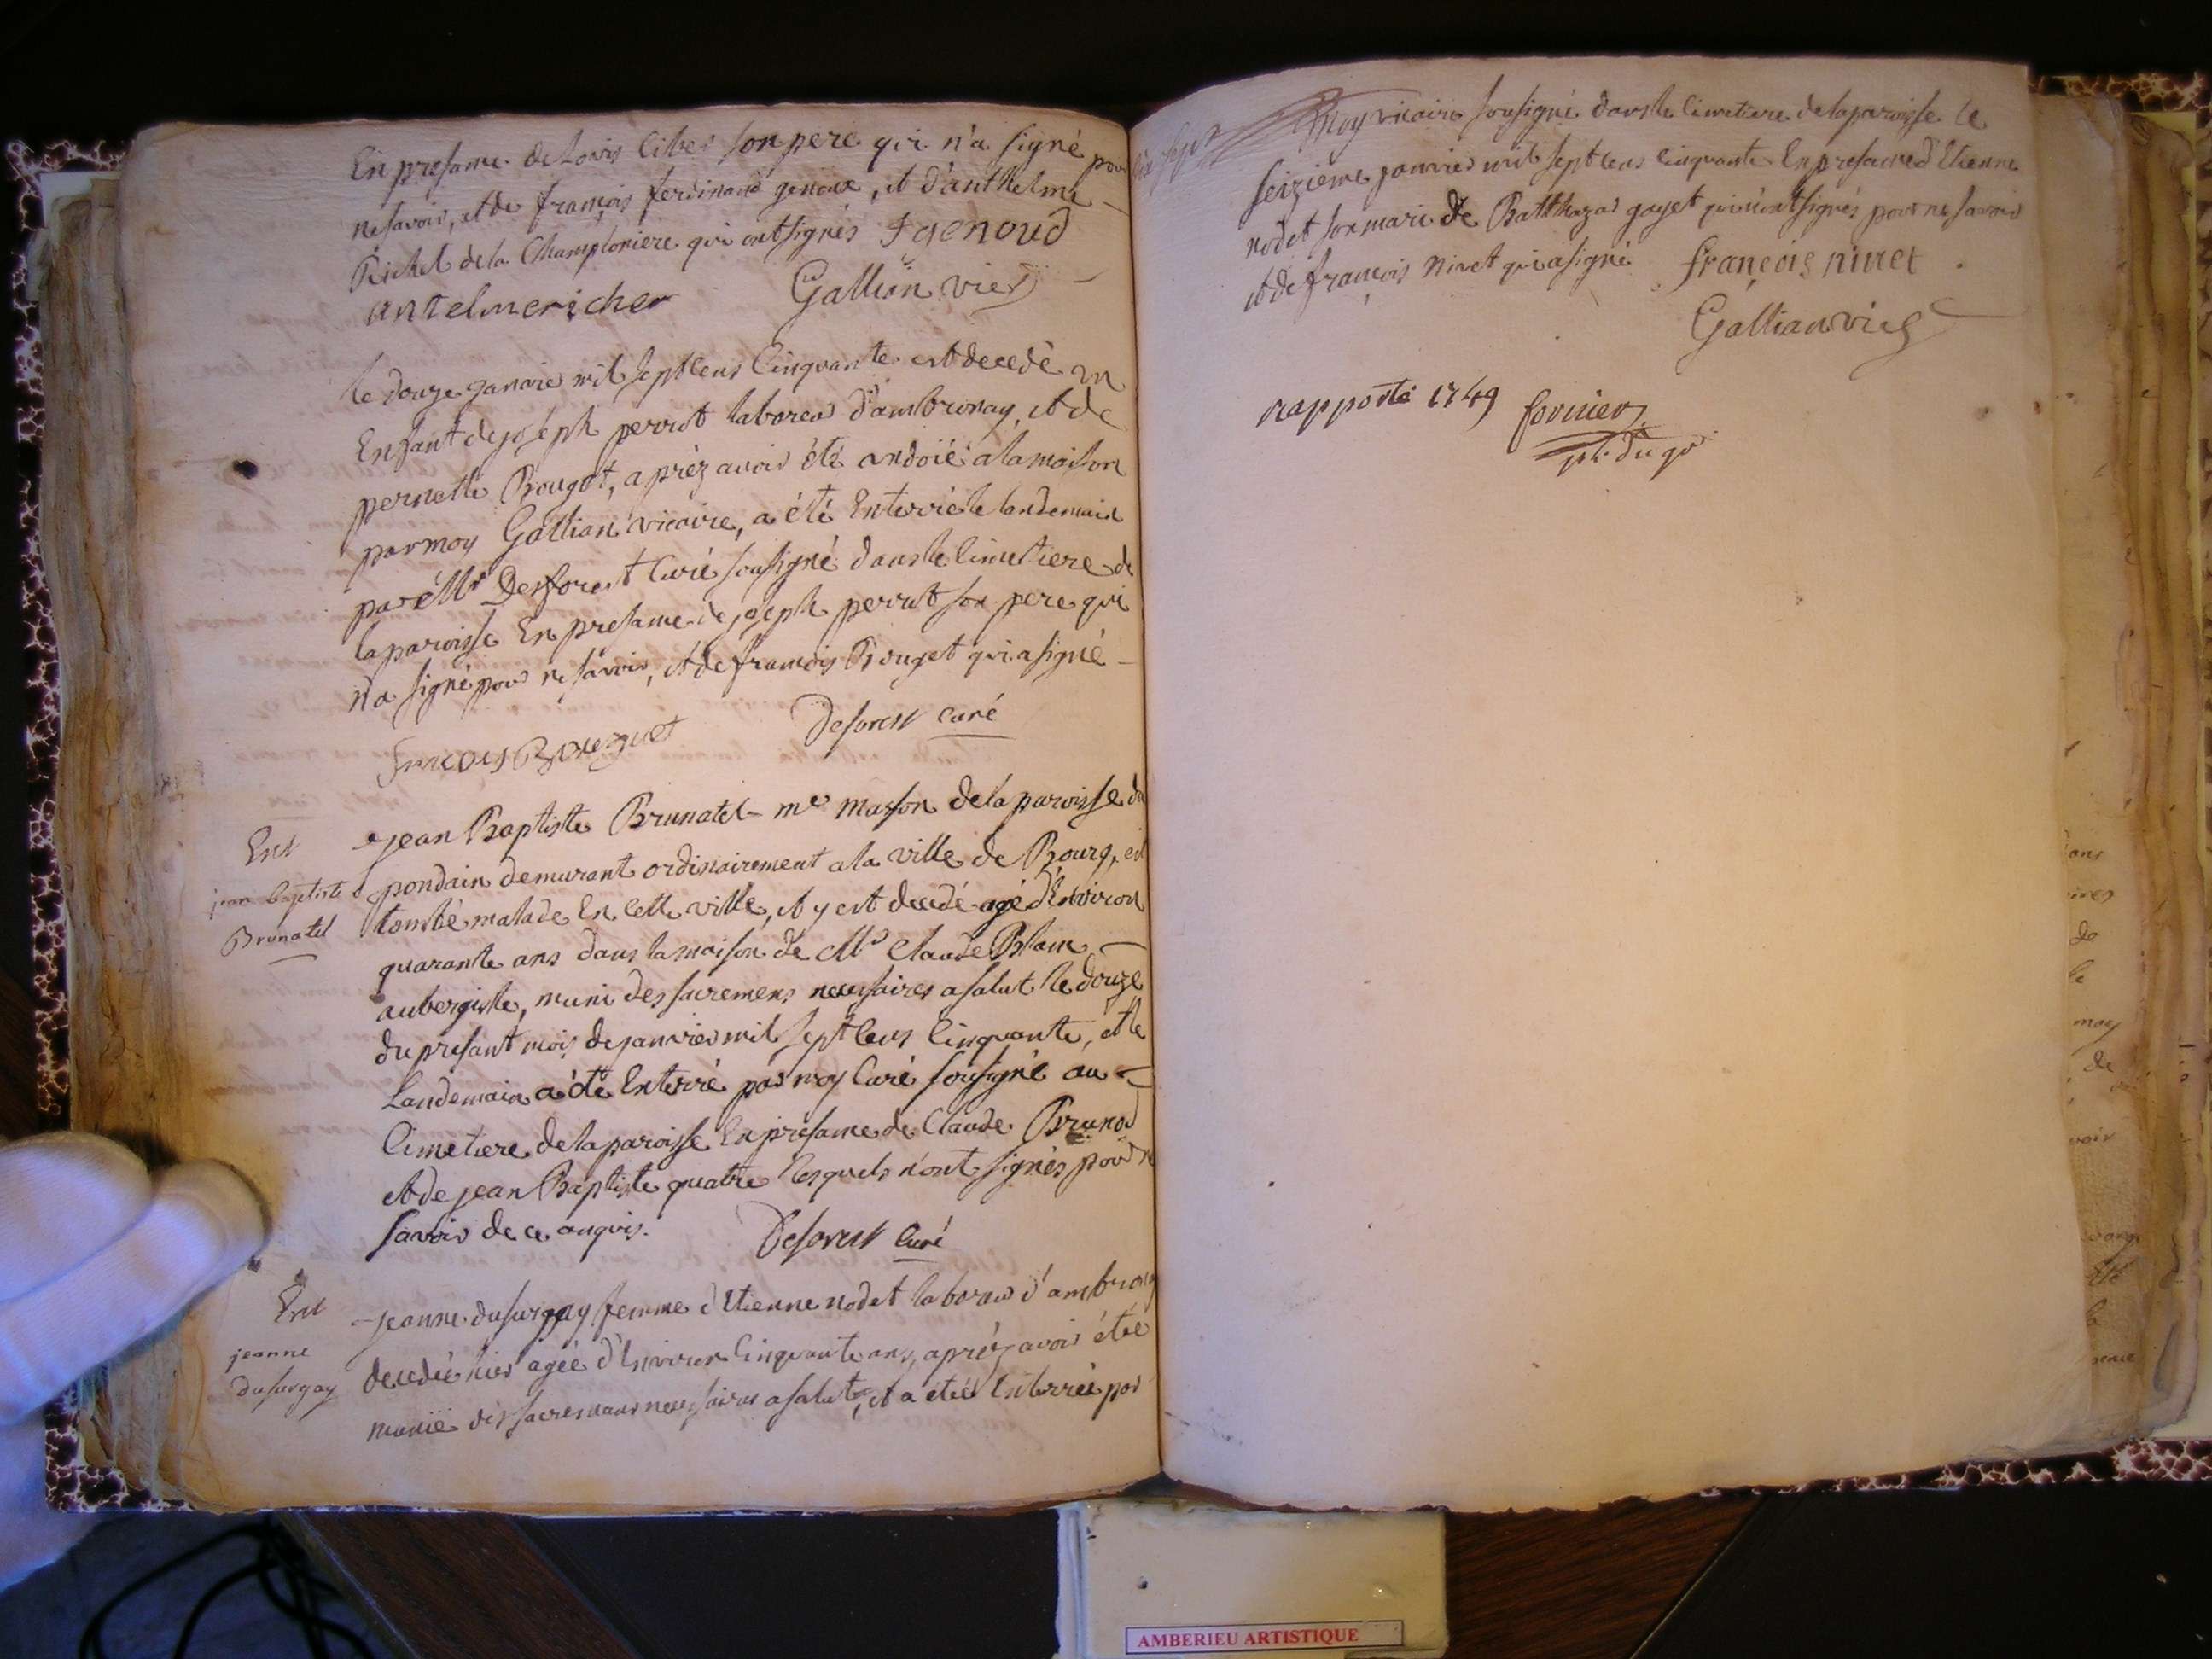 En presance de Louis Cibes son pere qui n'a signé pour
ne savoir, et de françois ferdinand genoux, et d'anthelme
Richet de la Champloniere qui ont signés fgenoud
antelmericher Gallian vicr
le douze janvier mil sept cens cinquante est decedé un
Enfant de joseph perrot laboreur d'ambronay, et de
pernette Bouget, apréz avoir été ondoié a la maison
par moy Gallian vicaire, a été Enterré le landemain
par Mr Desforest Curé sousigné dans le cimetiere de
la paroisse En presance de joseph perrot son pere qui
n'a signé pour ne savoir, et de francois Bouget qui a signé
francois Bouguet Deforest curé
Ent
jean baptiste
Brunatel
jean Baptiste Brunatel me masson de la paroisse du
pondain demurant ordinairement a la ville de Bourg, est
tombé malade En cette ville, et y est decedé agé d'Environ
quarante ans dans la maison de Mr Claude Blanc
aubergiste, muni des sacremens necessaires a salut le douze
du presant mois de janvier mil sept cens cinquante, et le
Landemain a été Enterré par moy Curé sousigné au
Cimetiere de la paroisse En presance de Claude Brunod
et de jean Baptiste quatre lesquels n'ont signés pour ne
savoir de ce anquis. Deforest Curé
Ent
jeanne
dusurgay
jeanne dusurgay femme d'Etienne nodet laboreur d'ambronay
decedée hier agée d'Environ Cinquante ans, apréz avoir étée
munië des sacremans necessaires a salut, et a étée Enterrée par
moy vicaire sousigné dans le cimetiere de la paroisse le
seizieme janvier mil sept cens cinquante En presance d'Etienne
nodet son mari de Balthazar gayet qui n'ont signés pour ne savoir
et de françois Nivet qui a signé françois nivet
Gallian vicr
rapporté 1749